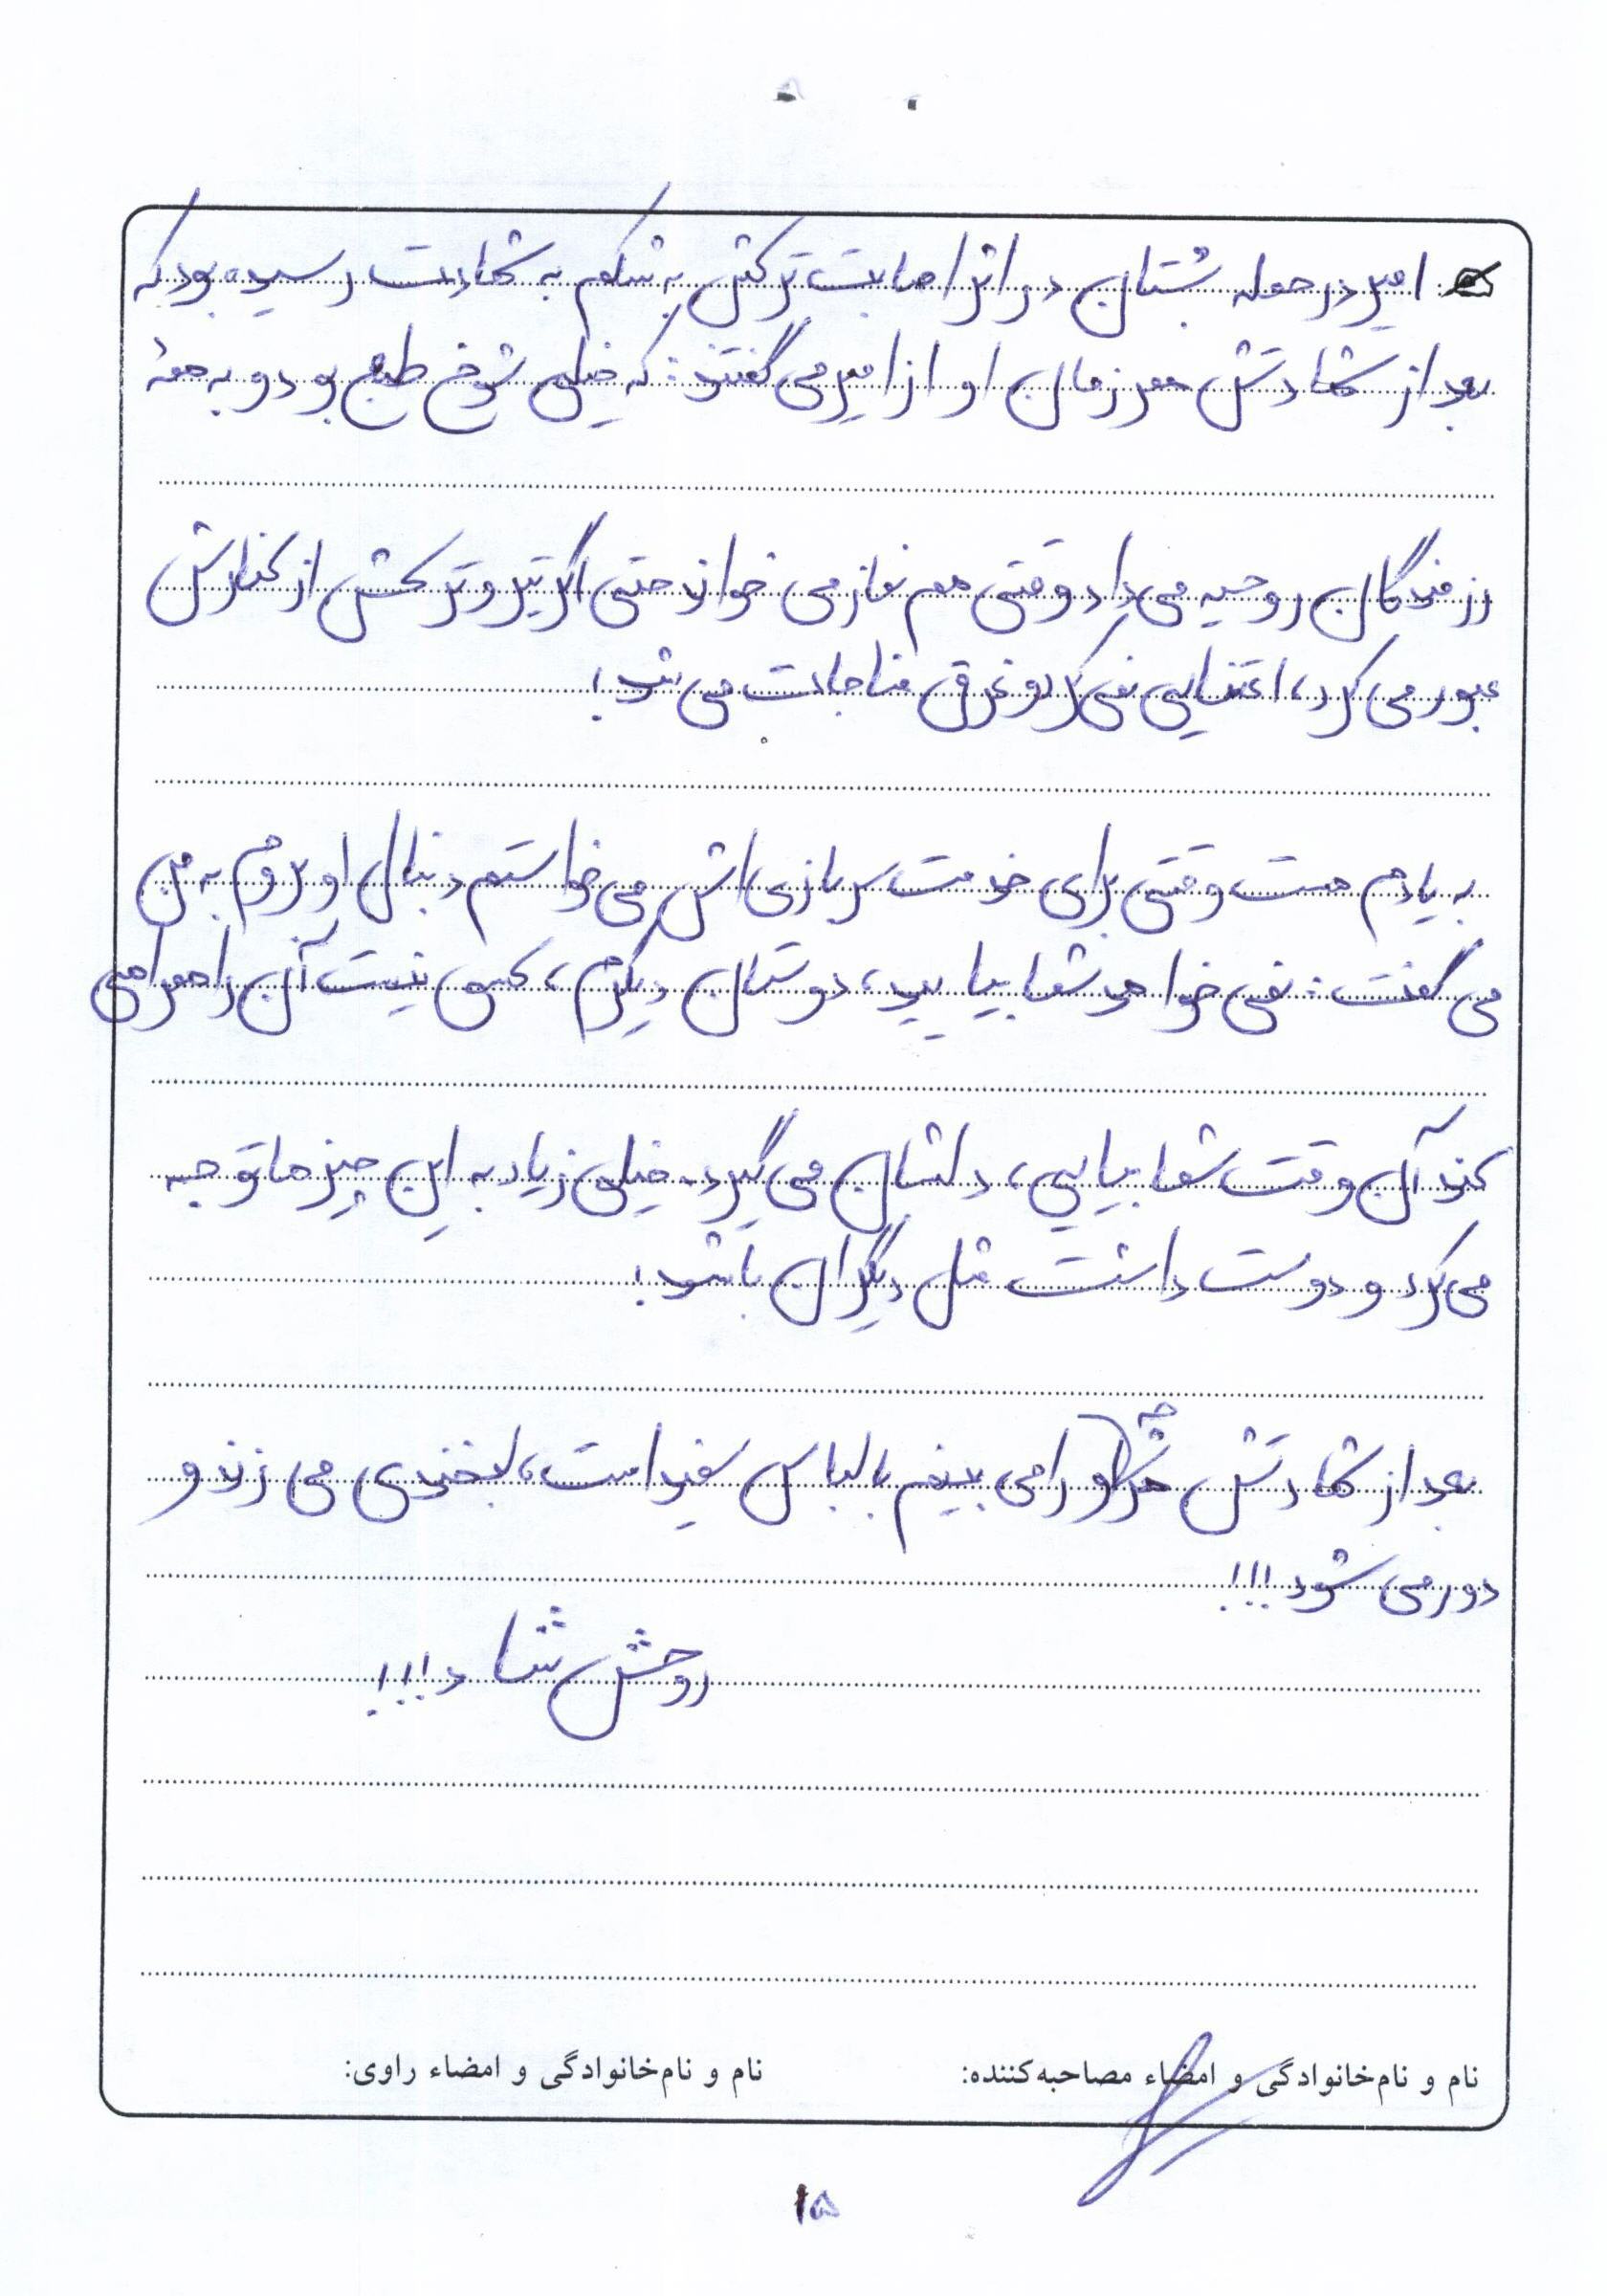 امیر در حمله بُستان در اثر اصابت ترکش به شکم به شهادت رسیده بود که
بعد از شهادتش همرزمان او از امیر می گفتند: که خیلی شوخ طبع بود و به همهٔ
رزمندگان روحیه می داد وقتی هم نماز می خواند حتی اگر تیر و ترکش از کنارش
عبور می کرد، اعتنایی نمی کرد و غرق مناجات می شد!
به یادم هست وقتی برای خدمت سربازی اش می خواستم دنبال او بروم به من
می گفت: نمی خواهد شما بیایید، دوستان دیگرم، کسی نیست آن را همراهی
کند آن وقت شما بیایی، دلشان می گیرد. خیلی زیاد به این چیزها توجه
می کرد و دوست داشت مثل دیگران باشد!
بعد از شهادتش او را می بینم با لباس سفید است، لبخندی می زند و
دور می شود!!!
روحش شاد!!!
نام و نام‌خانوادگی و امضاء مصاحبه‌کننده:
نام و نام‌خانوادگی و امضاء راوی:
۱۵